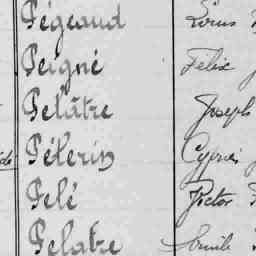 Pégeaud Louis
Peigné Félix
Pelâtre Joseph
Pélerin Cyprien
Pelé Victor
Pelatre Emile